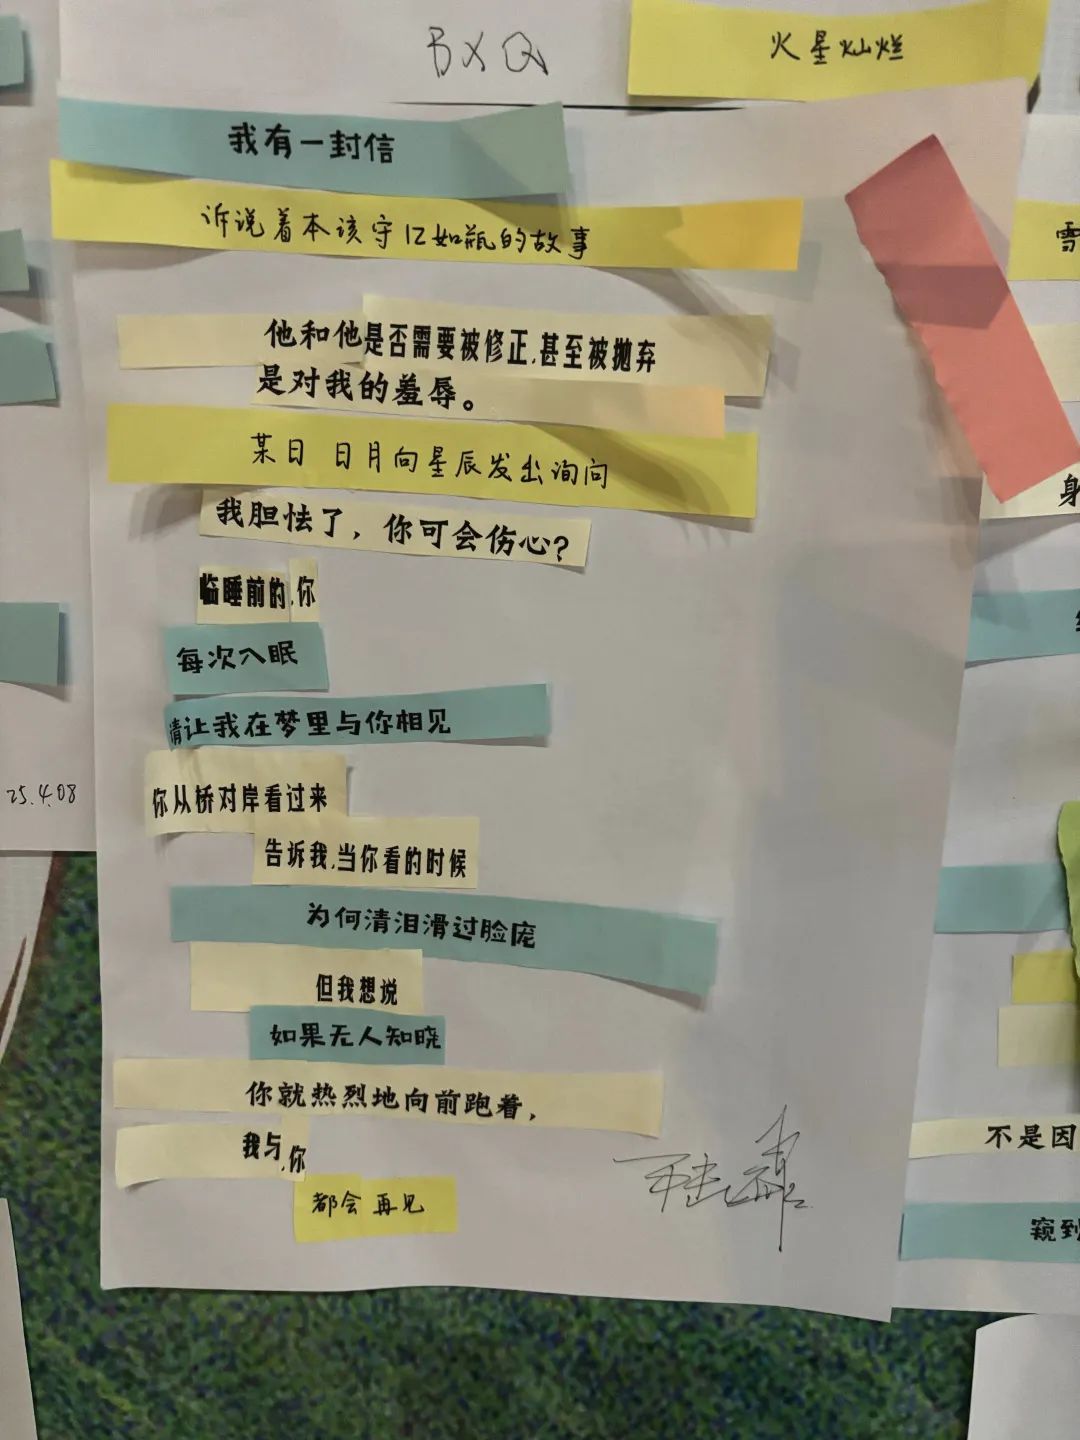 BXQ
火星灿烂
我有一封信
诉说着本该守口如瓶的故事
他和他是否需要被修正,甚至被抛弃
是对我的羞辱。
某日 日月向星辰发出询问
我胆怯了，你可会伤心?
临睡前的,你
每次入眠
请让我在梦里与你相见
你从桥对岸看过来
告诉我,当你看的时候
为何清泪滑过脸庞
但我想说
如果无人知晓
你就热烈地向前跑着，
我与,你
都会再见
25.4.08
雪
身
不是因
窥到